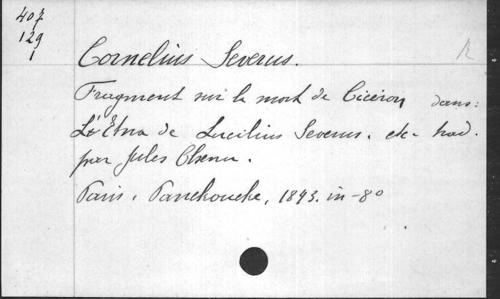 407
129
1
Cornelius Severus.
Fragment sur la mort de Cicéron dans:
L'Etna de Lucilius Severus. etc trad.
par Jules Chenu.
Paris, Panckoucke, 1843. in-8o